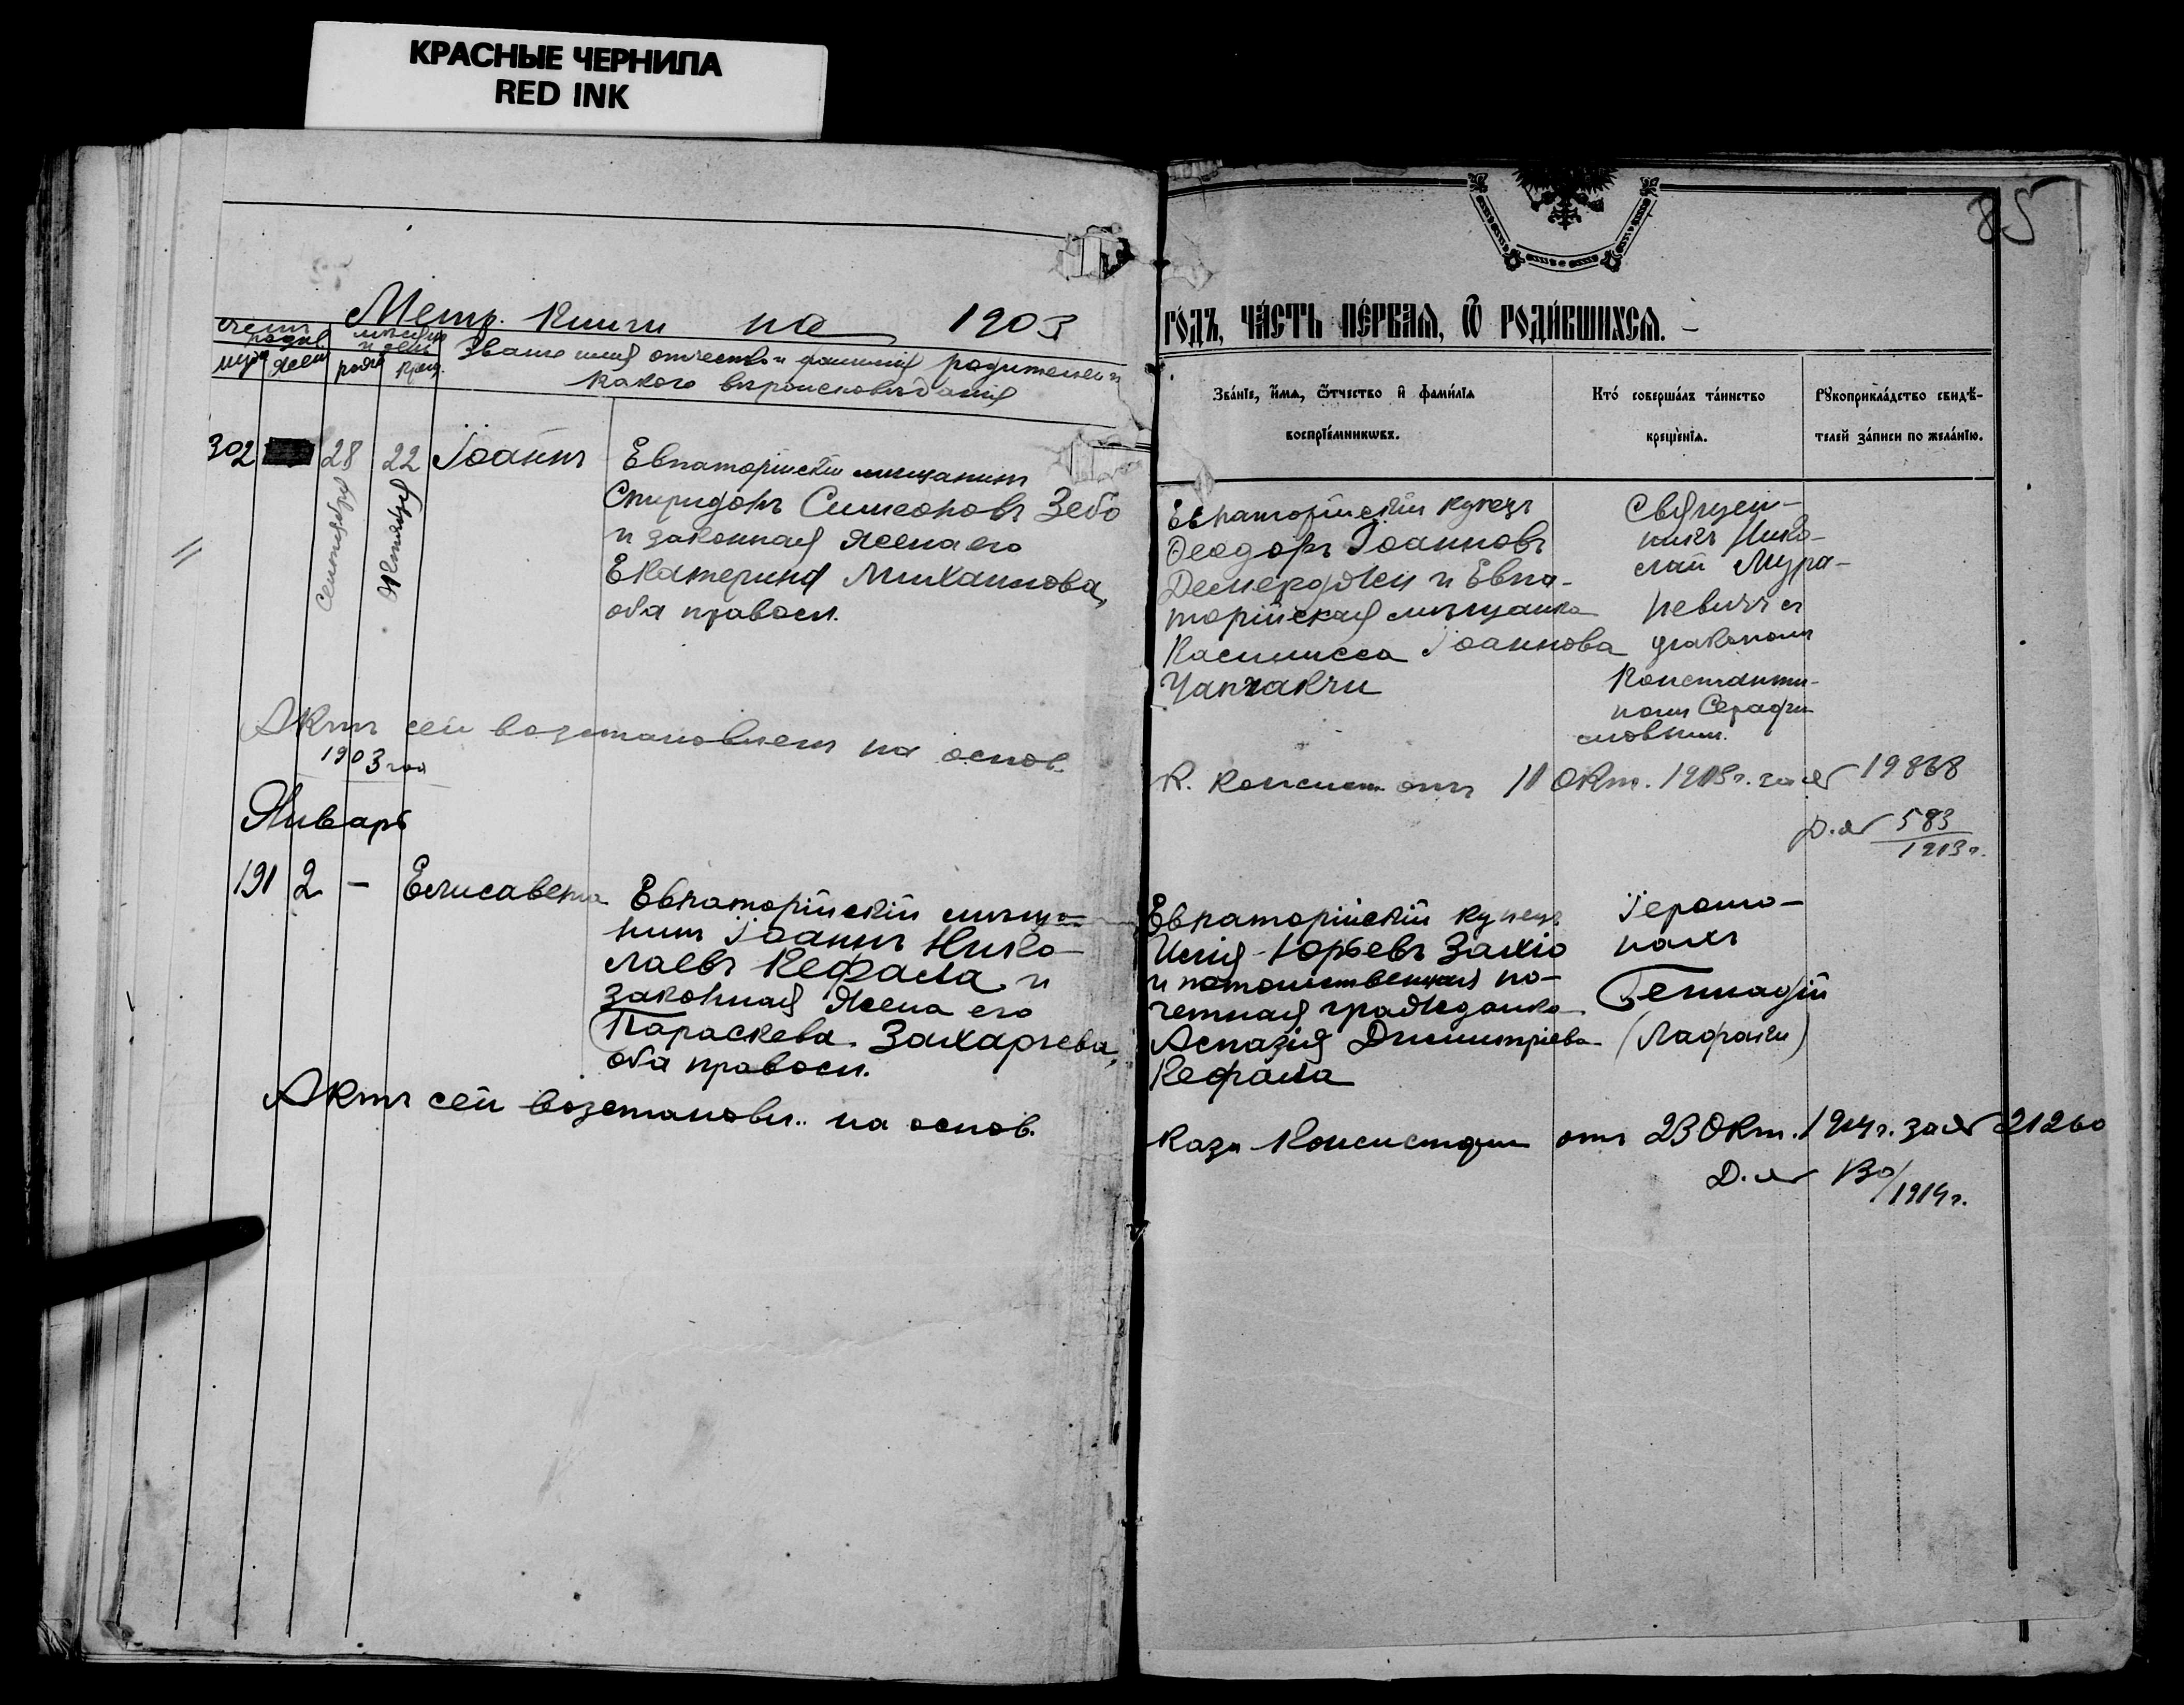 КРАСНЫЕ ЧЕРНИЛА
RED INK
85
Метр. книги на 1903
годъ, часть первая, ѿ родившихся.
счетъ родив.
мѣсяцъ и день
муж
жен
рожд
крещ.
Званіе имя отчество и фамилія родителей и
какого вѣроисповѣданія
Званіе, имя, ѿтчество и фамилія
воспріемниковъ.
Кто совершалъ таинство
крещенія.
Рукоприкладство свидѣ-
телей записи по желанію.
302
28
22
Іоаннъ
Сентября
Евпаторійскій мѣщанинъ
Спиридонъ Симеоновъ Зебо
и законная жена его
Екатерина Михаилова,
оба правосл.
Евпаторійскій купецъ
Ѳеодоръ Іоанновъ
и Евпа-
торійская мѣщанка
Іоаннова
Чапчакчи
Священ-
никъ Нико-
лай Мура-
невичъ съ
діакономъ
Константи-
номъ Серафи
мовымъ.
Актъ сей возстановленъ на основ.
К. Консист. отъ 11 Окт. 1913 г. за №
Д. № 583
1913 г.
1903 год
Январь
191
2
-
Елисавета
Евпаторійскій мѣща-
нинъ Іоаннъ Нико-
лаевъ Кефала и
законная жена его
Параскева Захарьева,
оба правосл.
Евпаторійскій купецъ
Илія Юрьевъ
и потомственная по-
четная гражданка
Аспазія Димитріева
Кефала
Іеромо-
нахъ
Геннадій
(Лафаки)
Актъ сей возстановл. на основ.
каза Консисторіи отъ 23 Окт. 1914 г. за № 21260
Д. №
1914 г.